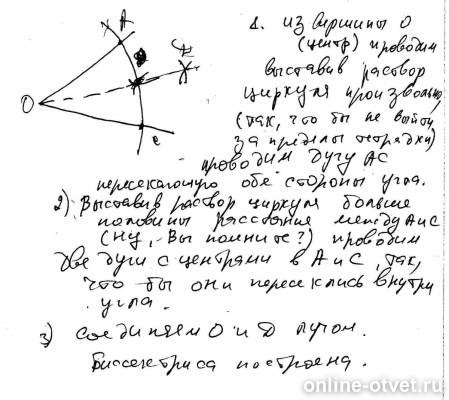 A
O
C
1. из вершины О
(центр) проводим
выставив раствор
циркуля произвольно,
(так, что бы не выйти
за пределы тетрадки)
проводим дугу АС
пересекающую обе стороны угла.
2) Выставив раствор циркуля больше
половины расстояние между А и С
(ну, Вы помните?) проводим
две дуги с центрами в А и С, так,
что бы они пересеклись внутри
угла.
3) Соединяем О и D лучом.
Биссектриса построена.
online-otvet.ru